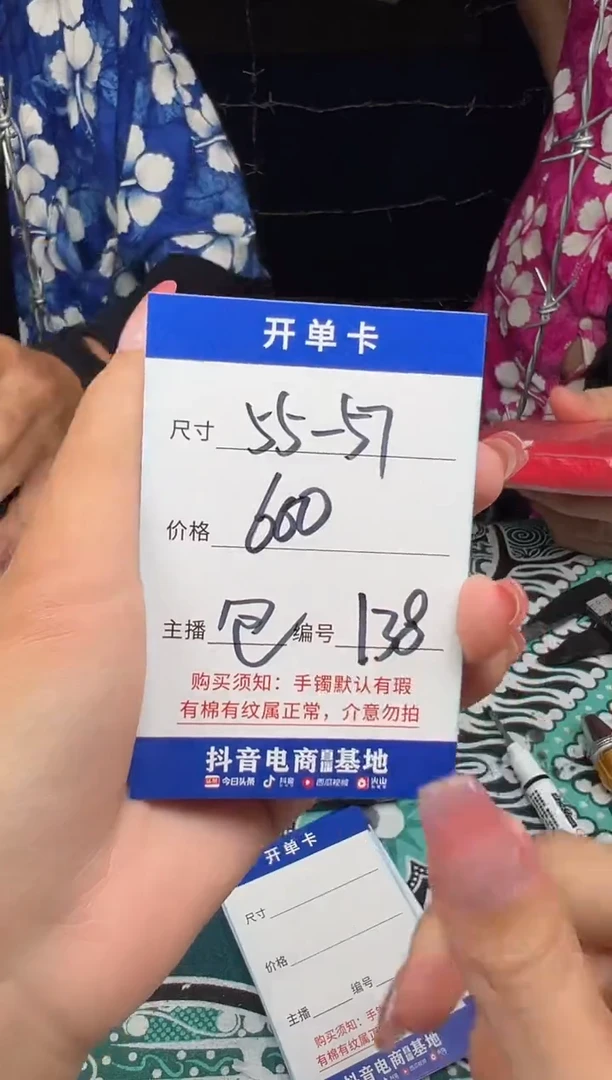 开单卡
尺寸 55-57
价格 600
主播 包 编号 138
购买须知：手镯默认有瑕
有棉有纹属正常，介意勿拍
抖音电商直播基地
今日头条 抖音 西瓜视频 火山
开单卡
尺寸
价格
主播 编号
购买须知：手
有棉有纹属正
抖音电商直播基地